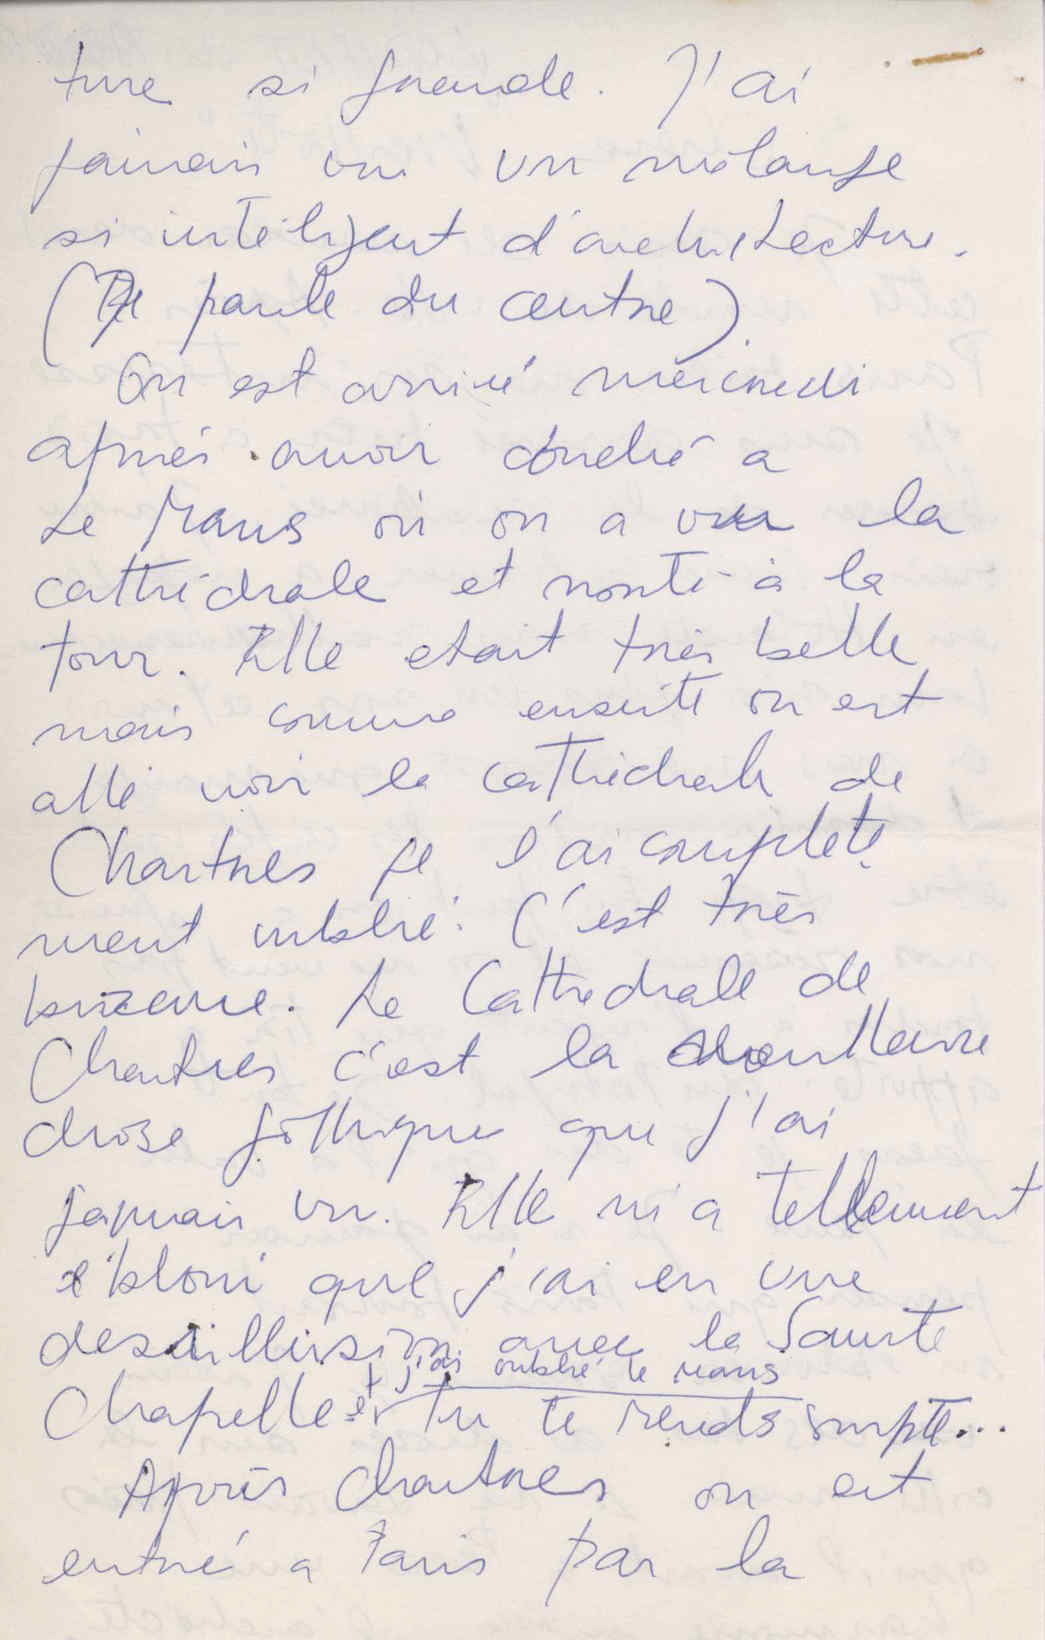 ture si grande. J'ai
jamais vu un mélange
si inteligent d'architecture.
(Je parle du centre).
On est arrivé mercredi
après avoir couché a
Le Mans où on a vu la
cathédrale et monté à la
tour. Elle etait très belle
mais comme ensuite on est
allé voir la cathédrale de
Chartres je l'ai complete
ment oublié. C'est très
bizarre. La Cathedrale de
Chartres c'est la meilleure
chose gothique que j'ai
jamais vu. Elle m'a tellement
ébloui que j'ai eu une
desillusion avec la Sainte
et j'ai oublié le mans
Chapelle Tu te rends compte...
Après Chartres on est
entré a Paris par la